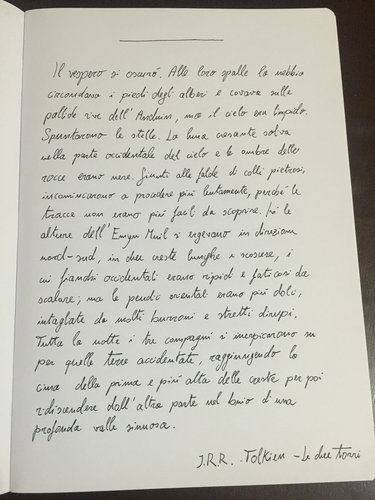 Il vespero si oscurò. Alle loro spalle la nebbia
circondava i piedi degli alberi e covava sulle
pallide rive dell'Anduin, ma il cielo era limpido.
Spuntarono le stelle. La luna crescente saliva
nella parte occidentale del cielo e le ombre delle
rocce erano nere. Giunti alle falde di colli pietrosi,
incominciarono a procedere più lentamente, perché le
tracce non erano più facili da scoprire. Lì le
alture dell'Emyn Muil si ergevano in direzione
nord-sud, in due creste lunghe e scoscese, i
cui fianchi occidentali erano ripidi e faticosi da
scalare; ma le pendici orientali erano più dolci,
intagliate da molti burroni e stretti dirupi.
Tutta la notte i tre compagni si inerpicarono su
per quelle terre accidentate, raggiungendo la
cima della prima e più alta delle creste per poi
ridiscendere dall'altra parte nel buio di una
profonda valle sinuosa.
J.R.R. Tolkien - Le due torri